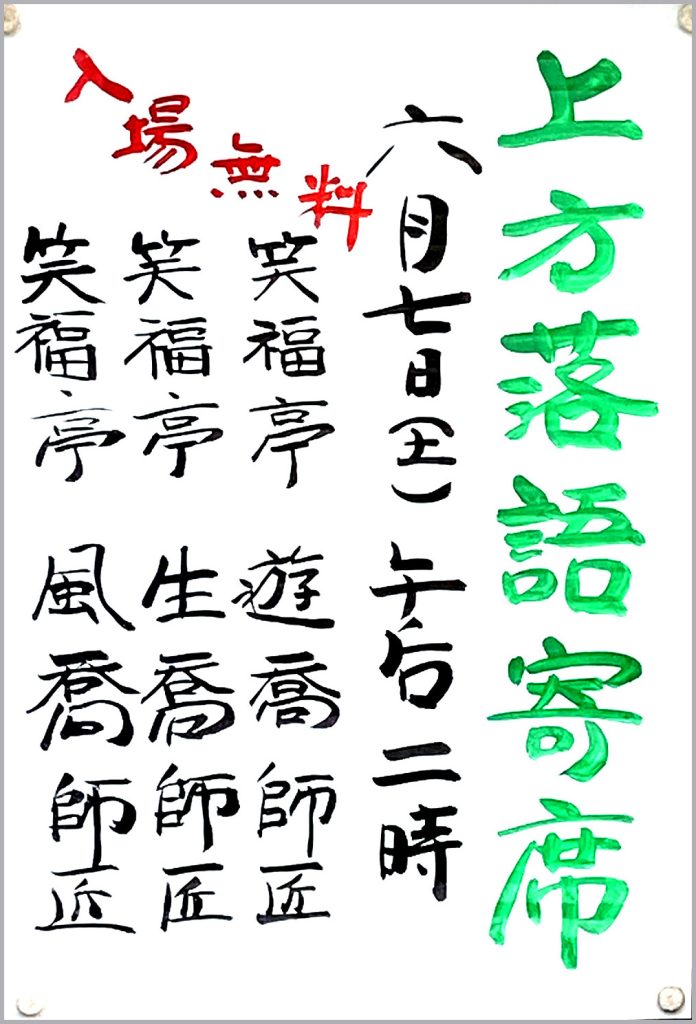 上方落語寄席
六月七日(土)午后二時
入場無料
笑福亭 遊喬師匠
笑福亭 生喬師匠
笑福亭 風喬師匠